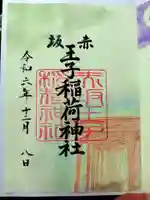 赤坂
王子稲荷神社
令和六年十二月八日